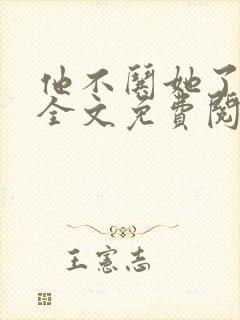 他不闹她了
全文免费阅
王宪志